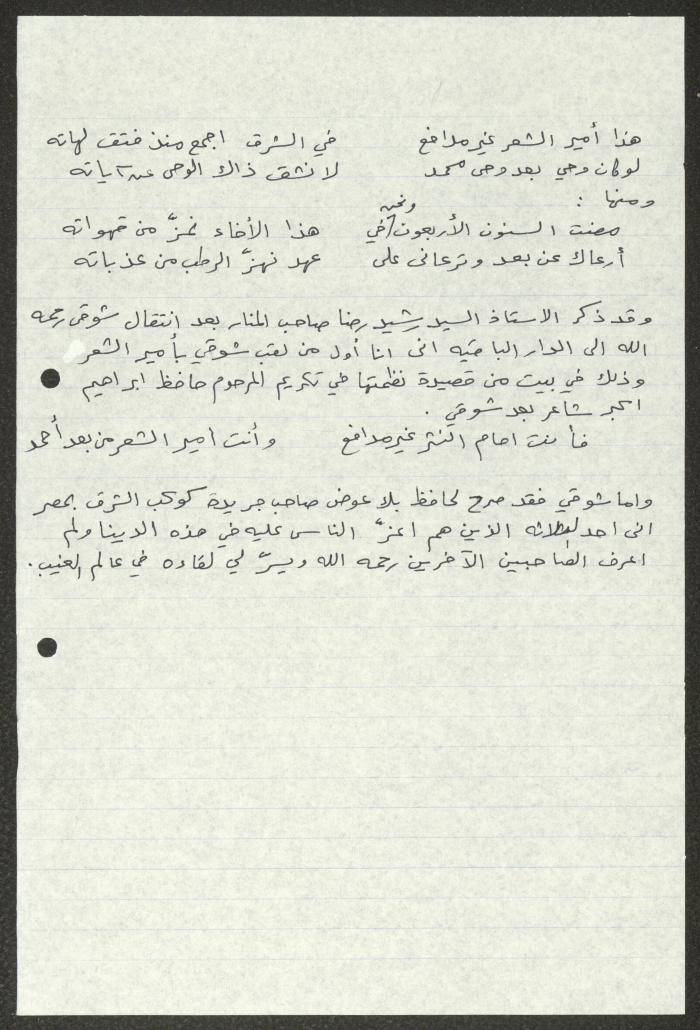 هذا أمير الشعر غير مدافع في الشرق اجمع منذ فتق لهاته
لو كان وحي بعد وحي محمد لانشق ذاك الوحي عن آياته
ومنها :
مضت السنون الأربعون ونحن في هذا الأخاء نمزّ من قهواته
أرعاك عن بعد وترعانى على عهد نهزّ الرطب من عذباته
وقد ذكر الاستاذ السيد رشيد رضا صاحب المنار بعد انتقال شوقي رحمه
الله الى الدار الباقيه انى انا أول من لقب شوقي بأمير الشعر
وذلك في بيت من قصيدة نظمتها في تكريم المرحوم حافظ ابراهيم
اكبر شاعر بعد شوقي .
فأنت امام النثر غير مدافع وأنت امير الشعر من بعد أحمد
واما شوقي فقد صرح لحافظ بك عوض صاحب جريدة كوكب الشرق بمصر
انى احد الثلاثه الذين هم اعزّ الناس عليه في هذه الدينا ولم
اعرف الصاحبين الآخرين رحمه الله ويسرّ لي لقاءه في عالم الغيب .